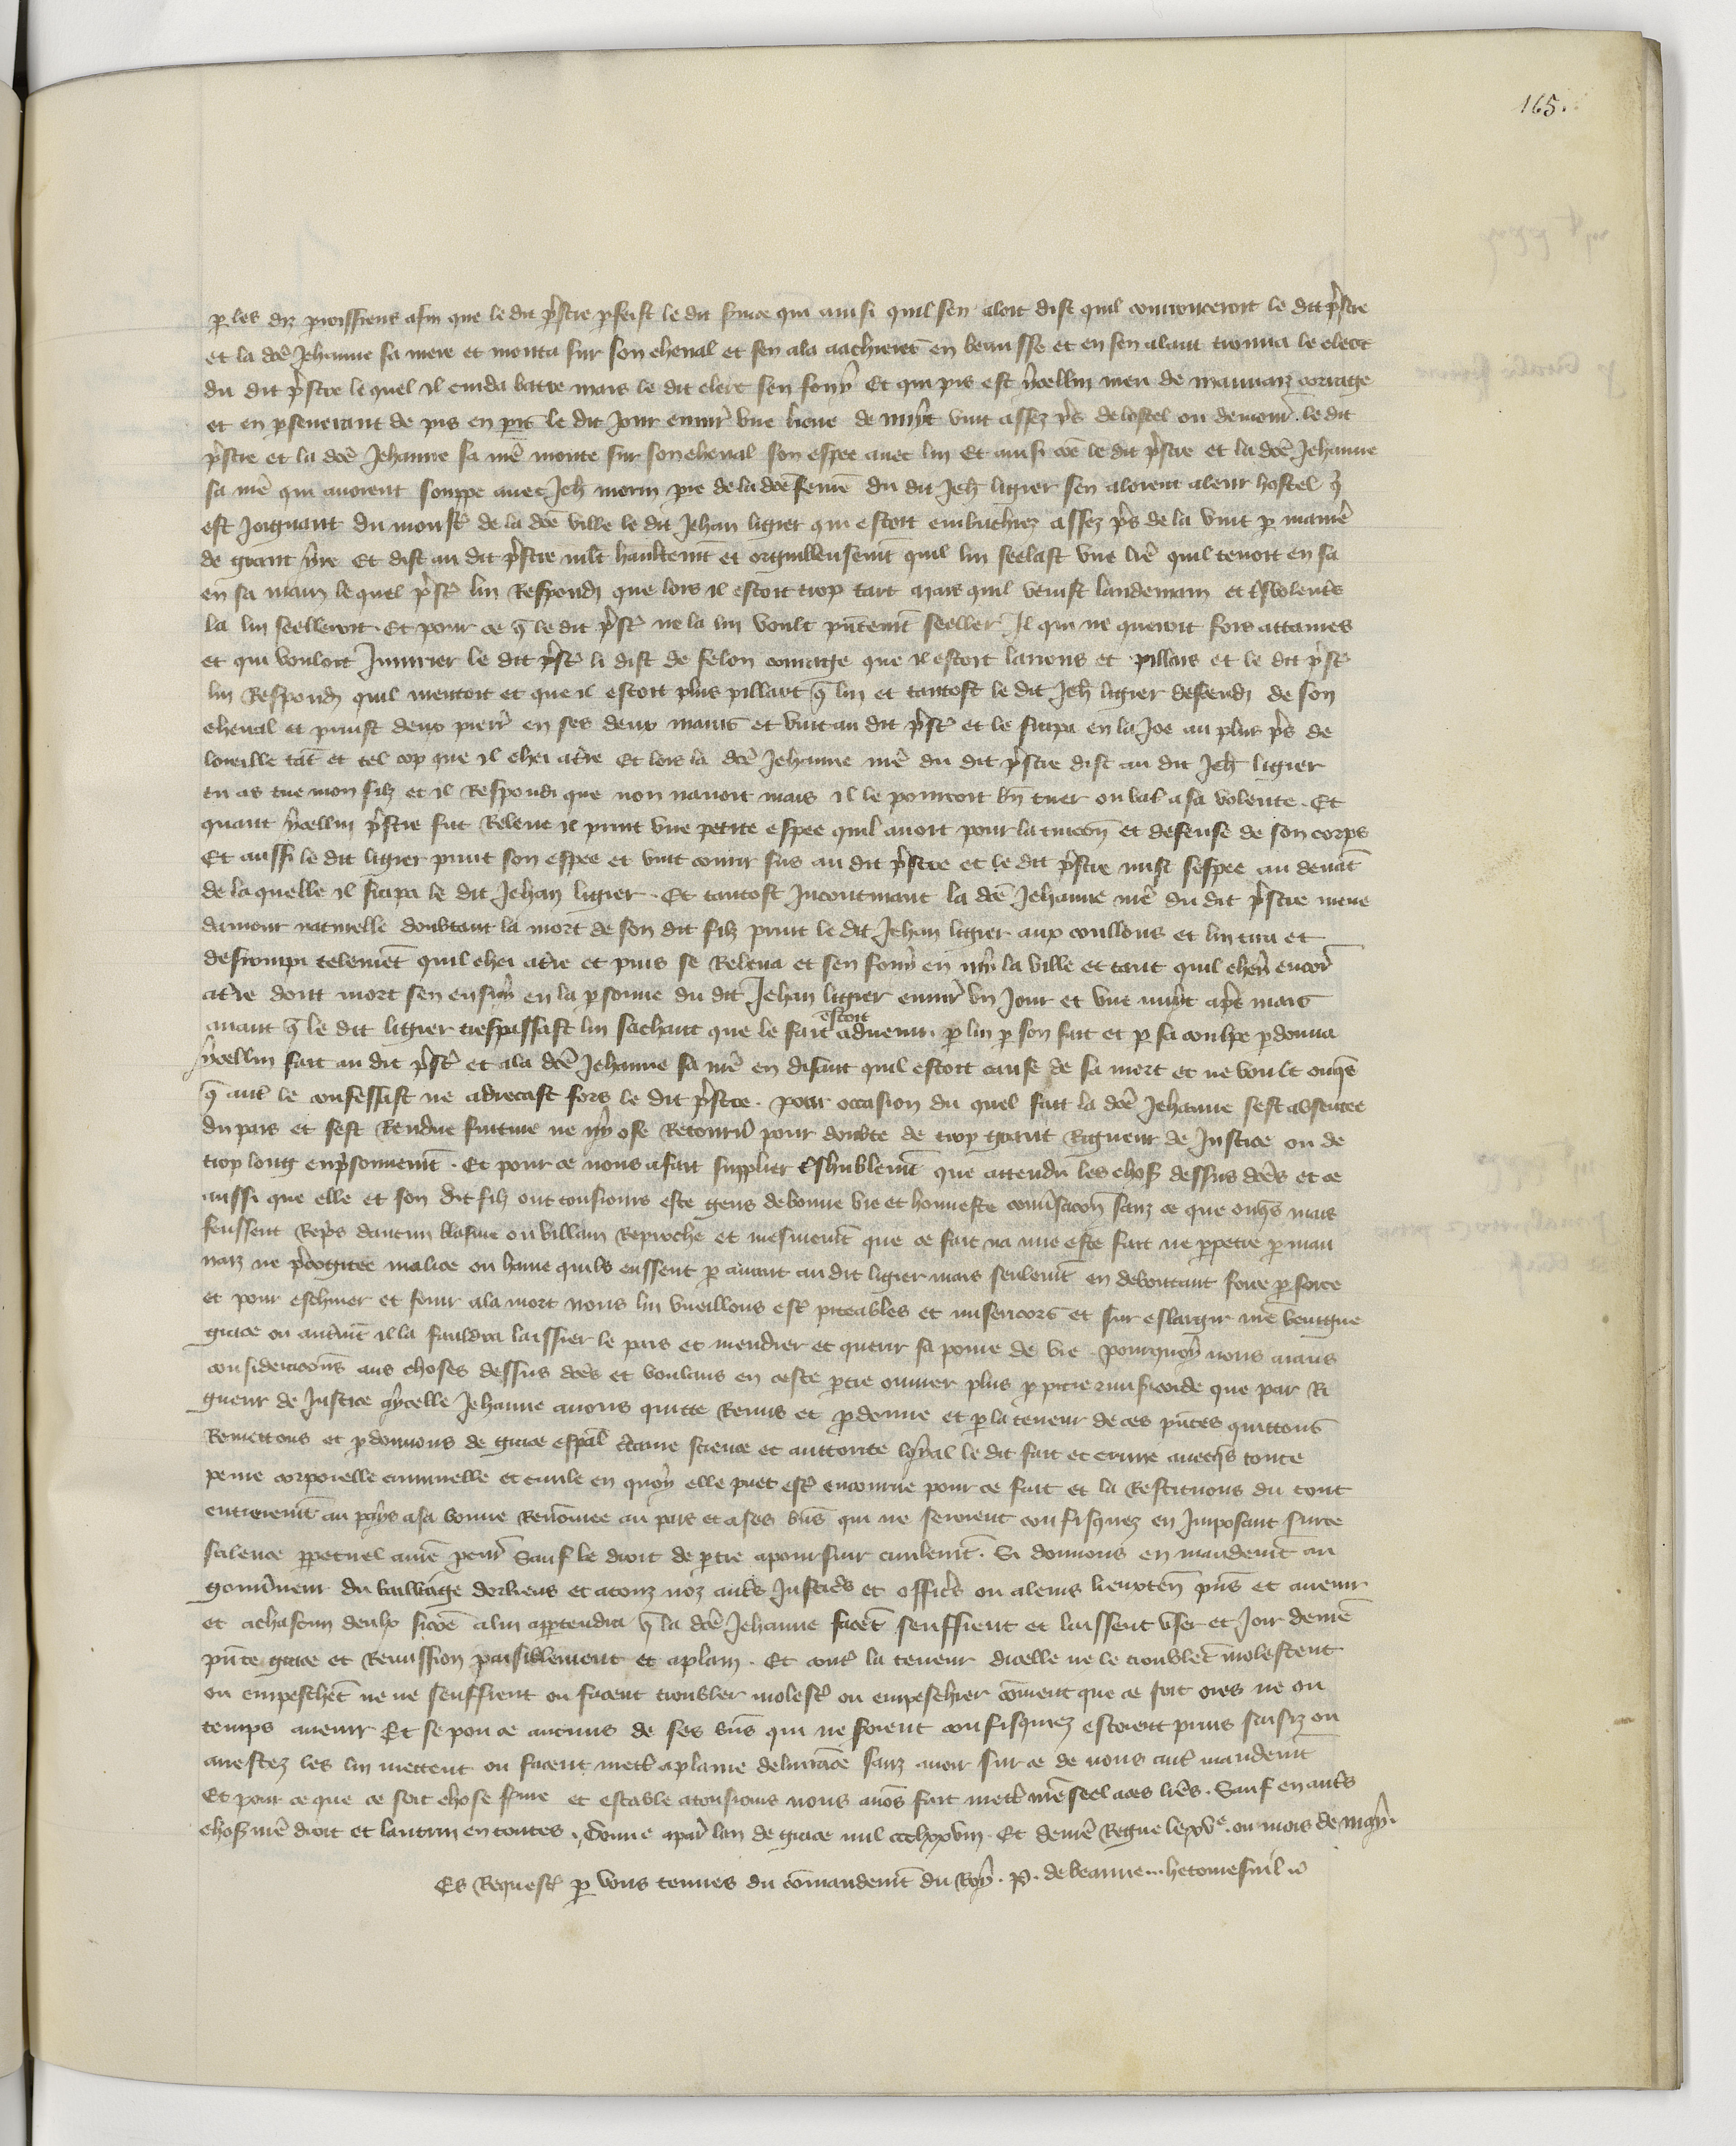 165.
p les diz proissiens afin que le dit p̃stre pfeist le dit suice qui ainsi quil sen aloit dist quil courouceroit le dit p̃stre
et la dc̃e Jehanne sa mere et monta sur son cheval et sen ala achierer en beausse et en sen alant trouua le clerc
du dit p̃stre le quel il cuida batre mais le dit clerc sen fouy Et qui pis est ycellui meu de mauuaiz corage
et en pseuerant de pis en pis le dit jour enuir̃ vne lieue de nuyt vint assez p̃s de lostel ou demour̃ le dit
p̃stre et la dc̃e Jehanne sa me᷑ monte sur son cheual son espee auec lui Et ainsi cõe le dit p̃stre et la dc̃e Jehanne
sa me᷑ qui auoient souppe auec Jeh̃ morin pe de la dc̃e fem̃e du dit Jeh̃ ligier sen aloient a leur hostel q̃
est joignant du moust᷑ de la dc̃e ville le dit Jehan ligier qui estoit embuchiez assez p̃s de la vint p manie᷑
de grant yre Et dist au dit p̃stre mlt haultemt̃ et orguilleusemt̃ quil lui seelast vne lr̃e quil tenoit en sa
en sa main le quel p̃st᷑ lui Respondi que lors il estoit trop tart mais quil venist landemain et t̃svolent̃s
la lui seelleroit. Et pour ce q̃ le dit p̃st᷑ ne la lui voult pñtemt̃ seeller Il qui ne queroit fors attaines
et qui vouloit Iniurier le dit p̃st᷑ li dist de felon courage que il estoit larrons et pillars et le dit p̃st᷑
lui Respondi quil mentoit et que il estoit plus pillart q̃ lui et tantost le dit Jeh̃ ligier descendi de son
cheual et prinst deux pierr᷑ en ses deux mains et vint au dit p̃st᷑ et le frapa en la joe au plus p̃s de
loreille tãt et tel cop que il chei a t᷑re Et lors la dc̃e Jehanne me᷑ du dit p̃stre dist au dit Jeh̃ ligier
tu as tue mon filz et il Respondi que non nauoit mais il le pourroit bñ tuer ou bat᷑ a sa volente. Et
quant ycellui p̃stre fut Releue il print vne petite espee quil auoit pour la tuicoñ et defense de son corps
Et aussi le dit ligier print son espee et vint courir sus au dit p̃stre et le dit p̃stre mist sespee au deuãt
de la quelle il frapa le dit Jehan ligier. Et tantost Incontinant la dc̃e Jehanne me᷑ du dit p̃stre meue
damour naturelle doubtant la mort de son dit filz print le dit Jehan ligier aux coullons et lui tira et
desrompi telemẽt quil chei a t᷑re et puis se Releua et sen fouy en my la ville et tant quil chey encor᷑
a t᷑re dont mort sen ensuy en la psonne du dit Jehan ligier enuir̃ vn jour et vne nuyt ap̃s mais
auant q̃ le dit ligier trespassast lui sachant que le fait estoit aduenu p lui p son fait et p sa coulpe pdonna
ycellui fait au dit p̃st᷑ et a la dc̃e Jehanne sa me᷑ en disant quil estoit cause de sa mort et ne voult onq̃s
q̃ aut᷑ le confessast ne adrecast fors le dit p̃stre. pour occasion du quel fait la dc̃e Jehanne sest absentee
du pais et sest Rendue fuitiue ne ny ose Retourn᷑ pour doubte de trop grant Rigueur de Justice ou de
trop long emp̃sonnemt̃. Et pour ce nous a fait supplier t̃shũblemt̃ que attendu les chos̃ dessus dc̃es et ce
aussi que elle et son dit filz ont tousiours este gens de bonne vie et honneste conu᷑sacoñ sanz ce que onq̃s mais
feussent Rep̃s daucun blasme ou villain Reproche et mesmemt̃ que ce fait na mie este fait ne ppetre p mau
uaiz ne p̃cogitee malice ou haine quilz eussent p auant au dit ligier mais seulemt̃ en deboutant force p force
et pour eschiuer et fouir a la mort nous lui vueillons est᷑ piteables et misericors et sur eslargir nr̃e benigne
grace ou aut᷑mt̃ il la fauldra laissier le pais et mendier et querir sa poure de vie. pourquoy nous aians
consideracoñs aus choses dessus dc̃es et voulans en ceste ptie ouurer plus p pitie et mis᷑icorde que par Ri
gueur de Justice a ycelle Jehanne auons quitte Remis et pdonne et p la teneur de ces pñtes quittons
Remettons et pdonnons de grace esp̃al c᷑taine science et auttorite royal le dit fait et crime auecq̃s toute
peine corporelle criminelle et ciuile en quoy elle puet est᷑ encourue pour ce fait et la Restituons du tout
entieremt̃ au pays a sa bonne Renõmee au pais et a ses biẽs qui ne seroient confisquez en Imposant sur ce
scilence ppetuel a nr̃e pcur᷑ Sauf le droit de ptie a poursuir ciuilemt̃. Si donnons en mandemt̃ au
gouu᷑neur du bailliage dorliens et a touz noz aut᷑s justiciẽs et officĩs ou a leurs lieuxteñ pñs et auenir
et a chascun deulx sicõe a lui appartendra q̃ la dc̃e Jehanne facẽt seuffrent et laissent vser et joir de nr̃e
pñte grace et Remission paisiblement et a plain. Et cont᷑ la teneur dicelle ne le troublẽt molestent
ou empeschẽt ne ne seuffrent ou facent troubler molest᷑ ou empeschier cõment que ce soit ores ne ou
temps auenir Et se pour ce aucuns de ses biẽs qui ne soient confisquez estoient prins saisiz ou
arrestez les lui mettent ou facent mett᷑ a plaine deliurãce sanz auoir sur ce de nous aut᷑ mandemt̃
Et pour ce que ce soit chose ferme et estable a tousiours nous auõs fait mett᷑ nr̃e seel a ces lr̃es. Sauf en aut᷑s
chos̃ nr̃e droit et lautrui en toutes. Donne a par᷑ lan de grace mil ccclxxviii. Et de nr̃e Regne le xve. ou mois de may.
Es Request᷑ p vous tenues du cõmandemt̃ du Roy. P. de beaune... hetomesnil